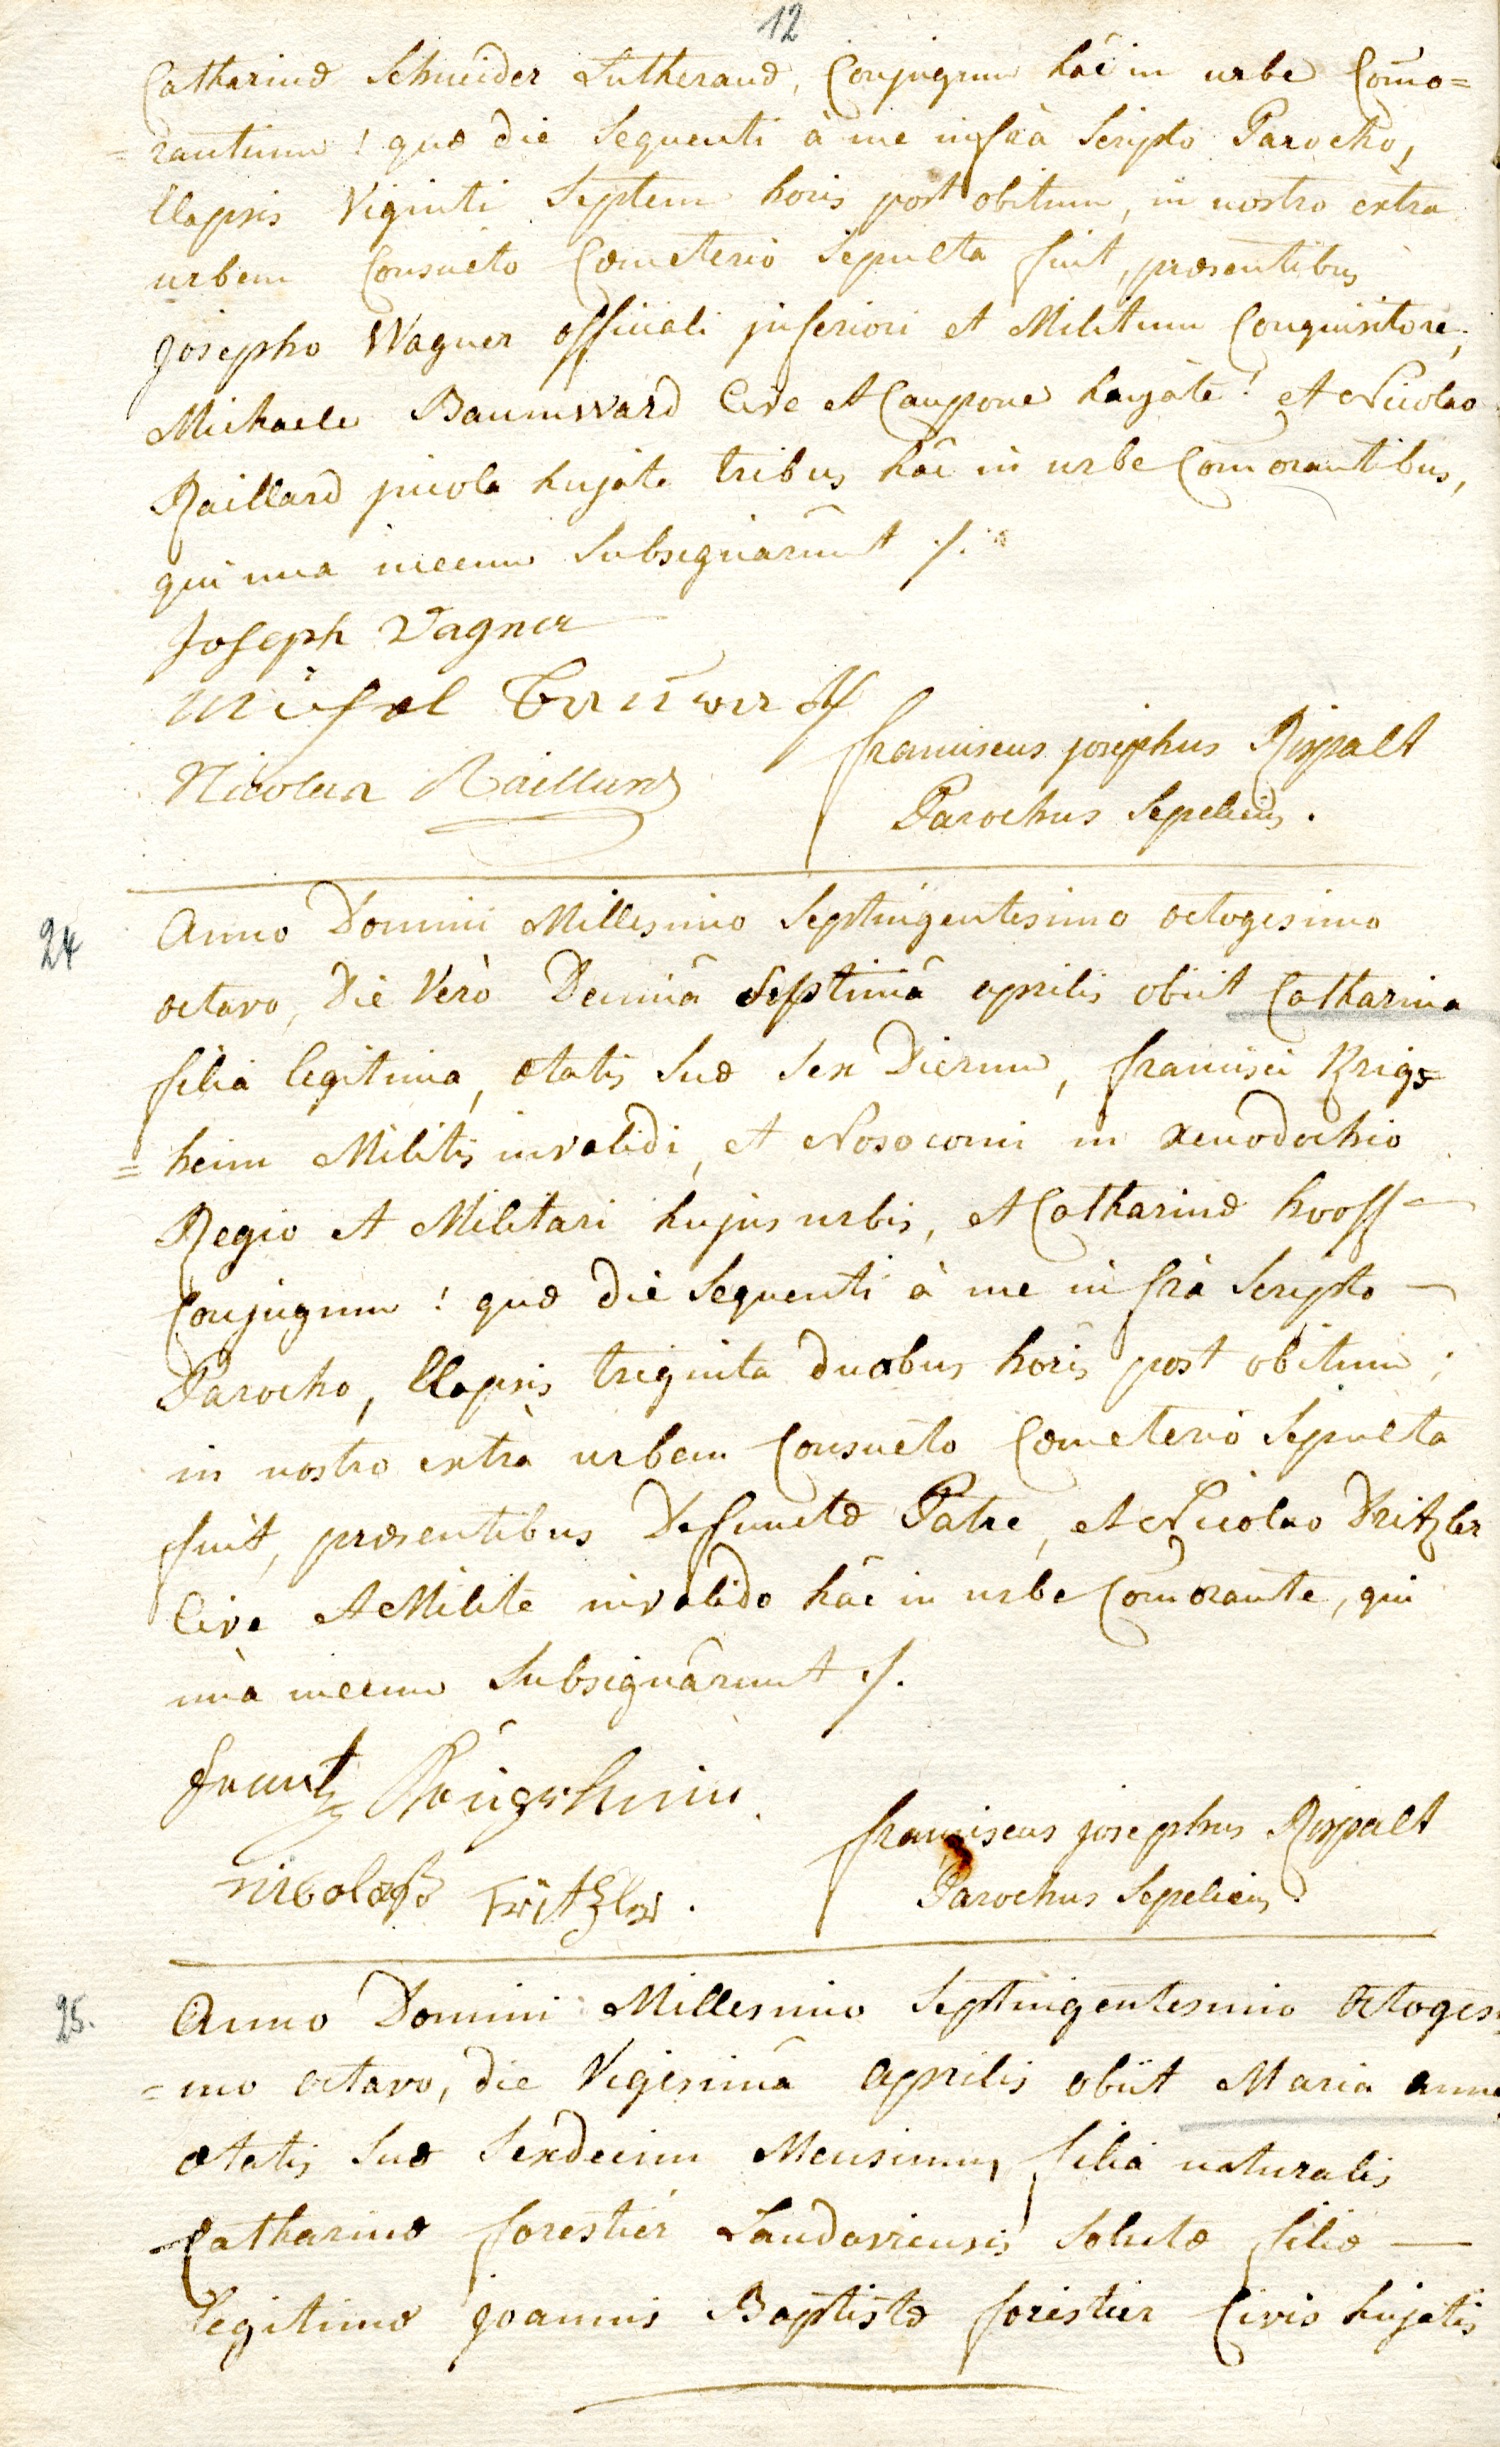 12
Catharinæ Schneider Lutheranæ, Conjugum hâc in urbe Com̃o=
=rantium! quæ die Sequenti à me infrà Scripto Parocho,
Elapsis Viginti Septem horis post obitum, in nostro extra
urbem Consueto Cœmeterio Sepulta fuit, præsentibus
Josepho Wagner officiali inferiori et Militum Conquisitore,
Michaele Baumward Cive et Caupone hujate! et Nicolao
Raillard incola hujate tribus hâc in urbe Com̃orantibus,
qui unà mecum Subsignarûnt ./.
Joseph Wagner
Michel
Nicolaa Raillard
franciscus josephus Rispalt
Parochus Sepeliens.
24
Anno Domini Millesimo Septingentesimo octogesimo
octavo, Die Verò Decimâ Septimâ aprilis obiit Catharina
filia legitima, ætatis Suæ Sex Dierum, francisci Krigs=
=heim Militis invalidi, et Nosocomi in xenodochio
Regio et Militari hujus urbis, et Catharinæ hooff
Conjugum! quæ die Sequenti à me infrà Scripto
Parocho, Elapsis triginta duobus horis post obitum;
in nostro extrà urbem Consueto Cœmeterio Sepulta
fuit, præsentibus Defunctæ Patre, et Nicolao Fritzler
Cive et Milite invalido hâc in urbe Com̃orante, qui
unà mecum Subsignârunt ./.
frantz
nicolaß Fritzler.
franciscus josephus Rispalt
Parochus Sepeliens
25.
Anno Domini Millesimo Septingentesimo octoges=
=mo octavo, die Vigesimâ aprilis obiit Maria anna
ætatis Suæ Sexdecim Mensium, filia naturalis
Catharinæ forestier Landaviensis Solutæ filiæ
legitimæ joannis Baptistæ forestier Civis hujatis